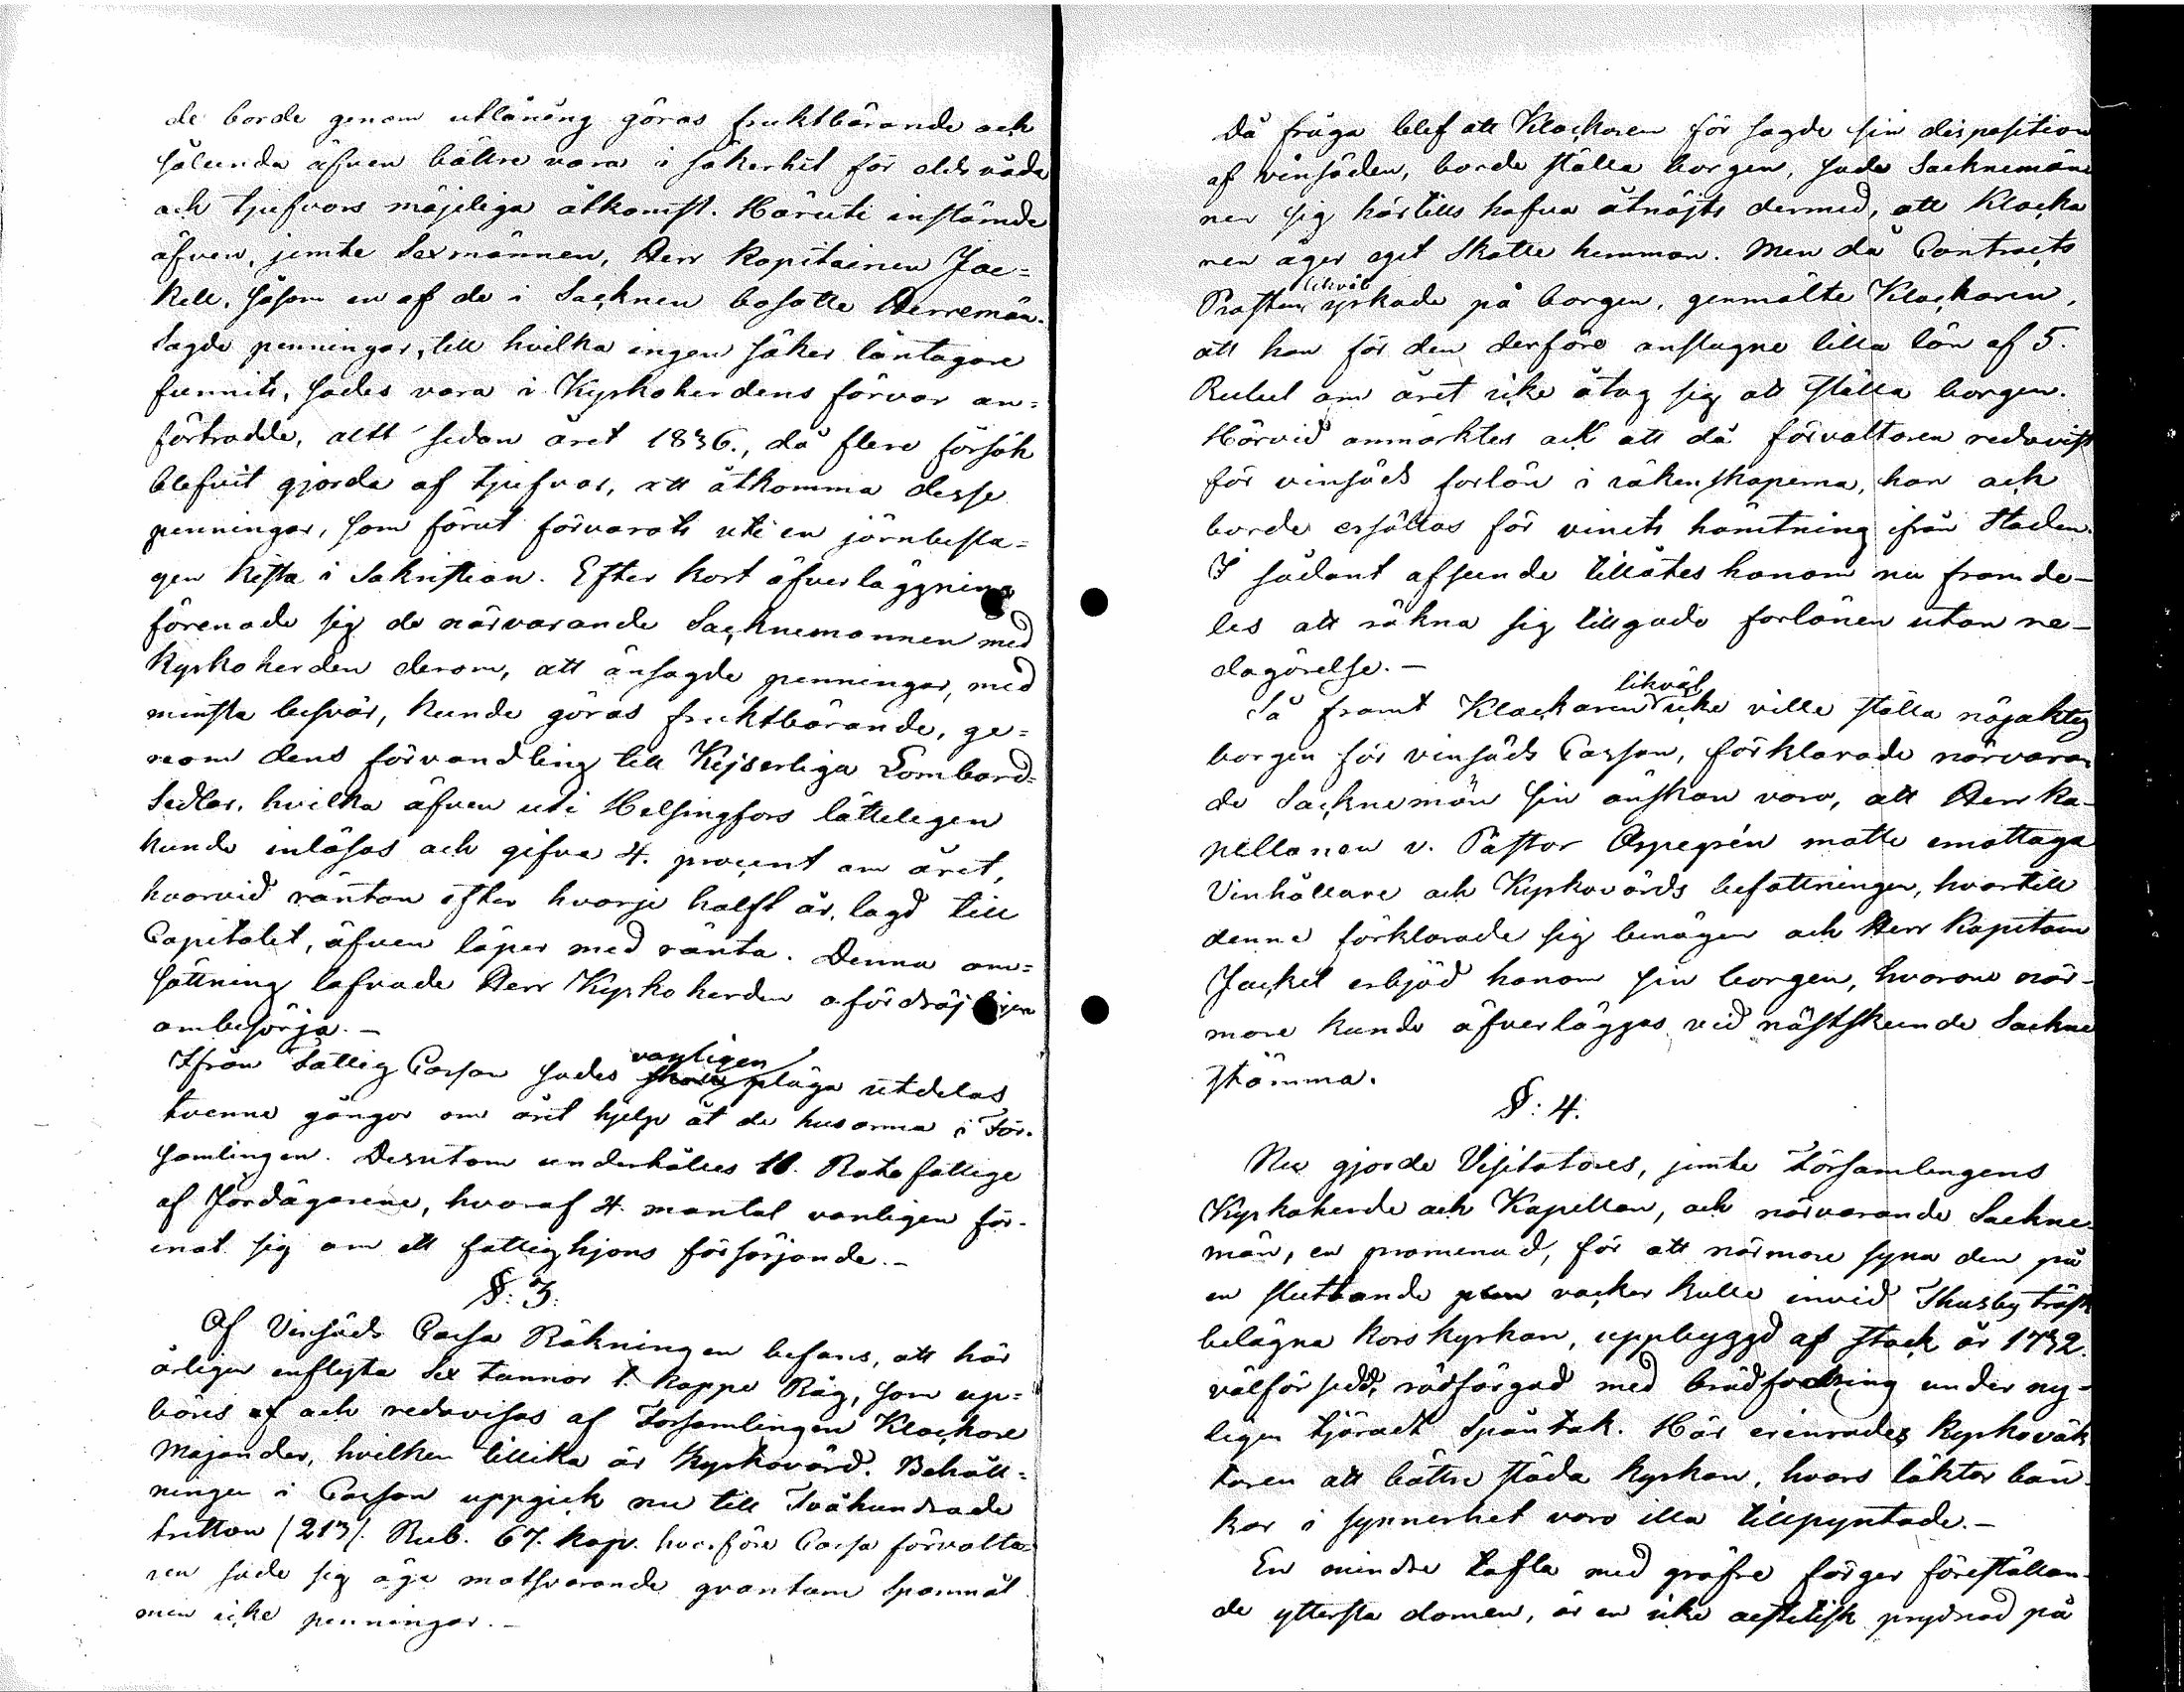 de borde genom utlåning göras fruktbärande och
sålunda äfven bättre vara i säkerhet för eldsvåda
och tjufvars möjeliga åtkomst. Häruti instämde
äfven, jemte Sexmännen, Herr Kapitainen Jae=
kell, såsom en af de i Sacknen bosatte Herremän.
Sagde penningar, till hvilka ingen säker låntagare
funnits, sades vara i Kyrkoherdens förvar an=
förtrodde, allt sedan året 1836., då flere försök
blefvit gjorde af tjufvar, att åtkomma desse
penningar, som förut förvarats uti en järnbesla=
gen kista i Sakristian. Efter kort öfverläggning
förenade sig de närvarande Sacknemannen med
Kyrkoherden derom, att ansagde penningar, med
minsta besvär, kunde göras fruktbärande, ge=
nom dens förvandling till Kejserliga Lombard=
Sedlar, hvilka äfven uti Helsingfors lätteligen
kunde inlösas och gifva 4. procent om året,
hvarvid räntan efter hvarje halft år, lagd till
Capitalet, äfven löper med ränta. Denna om=
sättning lofvade Herr Kyrkoherden ofördröjligen
ombesörja. –
Ifrån Fattig Cassan sades vanligen pläga utdelas
tvenne gånger om året hjelp åt de husarma i För-
samlingen. Desutom underhålles 11. Rotefattige
af Jordägarene, hvaraf 4 mantal vanligen för-
enat sig om ett fattighjons försörjande. –
§: 3.
Af Vinsäds Cassa Räkningen befans, att här
årligen inflyta Sex tunnor 1. kappe Råg, som up=
böres af och redovisas af Församlingen Klockare
Majander, hvilken tillika är Kyrkovärd. Behåll=
ningen i Cassan uppgick nu till Tvåhundrade
tretton (213). Rub. 67. kop. hvarföre Cassa förvalta=
ren sade sig äga motsvarande qvantum Spannmål
men icke penningar. –
Då fråga blef att Klockaren för sagde sin disposition
af vinsäden, borde ställa borgen, sade Sacknemän
nen sig härtills hafva åtnöjts dermed, att Klocka
ren äger eget Skatte hemman. Men då Contracts
Prosten likväl yrkade på borgen, genmälte Klockaren,
att han för den derföre anslagne lilla lön af 5.
Rubel om året icke åtog sig att ställa borgen.
Härvid anmärktes ock att då förvaltaren redovist
för vinsäds forlön i räkenskaperna, han ock
borde ersättas för vinets hämtning ifrån Staden.
I sådant afseende tilläts honom nu framde–
les att räkna sig tillgodo forlönen utan re–
dogörelse. –
Så framt Klockaren likväl icke ville ställa nöjaktig
borgen för vinsäds Cassan, förklarade närvaran
de Sacknemän sin önskan vara, att Herr Ka-
pellanen v. Pastor Aspegrén matte emottaga
Vinhållare och Kyrkovärds befattningen, hvartill
denne förklarade sig benägen och Herr Kapitain
Jackel erbjöd honom sin borgen, hvarom när-
mare kunde öfverläggas vid nästskeende Sackne
stämma.
§: 4.
Nu gjorde Visitatores, jemte Församlingens
Kyrkoherde och Kapellan, och närvarande Sackne
män, en promenad, för att närmare syna den på
en sluttande vacker kulle invid Thusby träsk
belägna korskyrkan, uppbyggd af stock år 1732.
välförsedd, rödfärgad med brädfodring under ny-
ligen tjäradt Spåntak. Här erinrades kyrkoväk
taren att bättre städa kyrkan, hvars läktar bän-
kar i synnerhet voro illa tillpyntade. –
En mindre tafla med gröfre färger föreställan-
de yttersta domen, är en icke aestetisk prydnad på